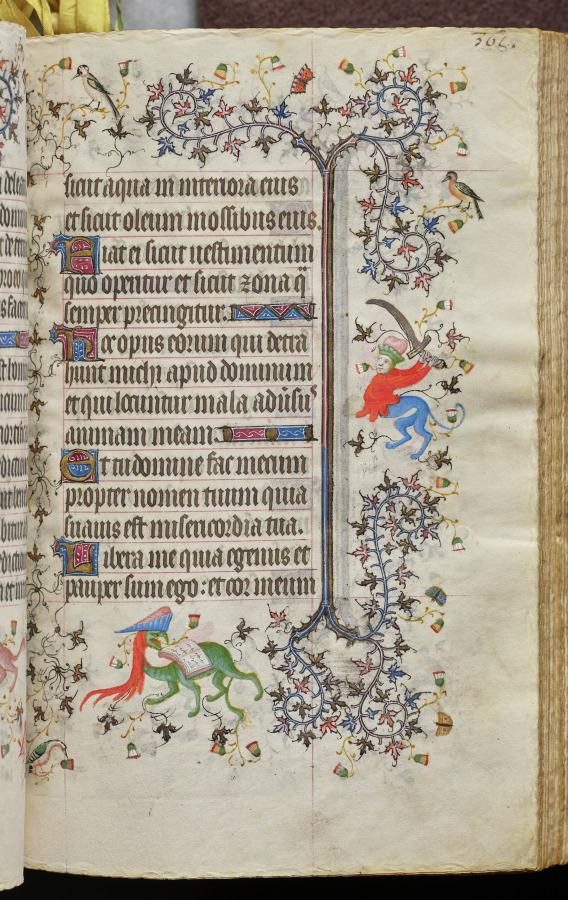 306.
sicut aqua in interiora eius
et sicut oleum in ossibus eius.
Fiat ei sicut uestimentum
quo operitur et sicut zona q̄
semper precingitur.
Hoc opus eorum qui detra
hunt michi apud dominum
et qui locuntur mala adūsus
animam meam.
Et tu domine fac mecum
propter nomen tuum quia
suauis est misericordia tua.
Libera me quia egenus et
pauper sum ego: et cor meum